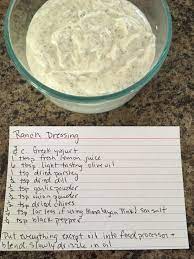 Ranch Dressing
c. Greek yogurt
1 tbsp fresh lemon juice
tbsp light tasting olive oil
1 tsp dried parsley
tsp dried dill
tsp garlic powder
tsp onion powder
tsp dried chives
tsp (or less if using Himalayan Pink) sea salt
tsp black pepper
Put everything except oil into food processor +
blend. Slowly drizzle in oil